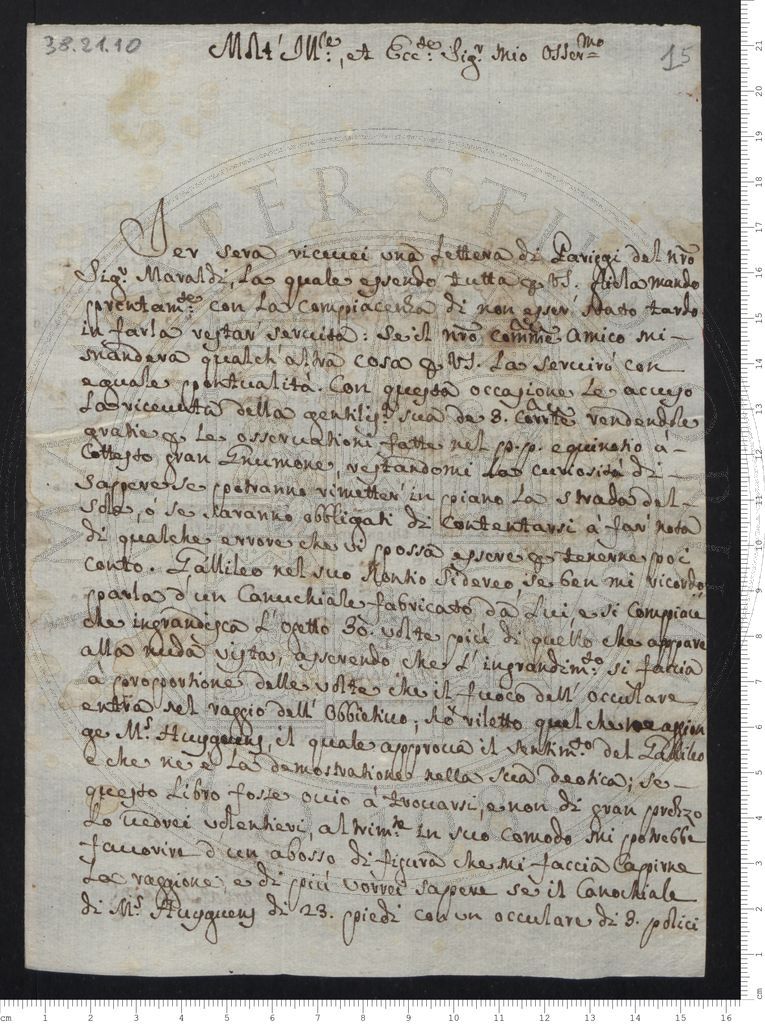 38.21.10
15
Molt' Ill.re, et Ecc.te Sig.r mio Osser.mo
Ier sera riceuei una Lettera di Pariggi del nro
Sig.r Maraldi, La quale essendo tutta p VS. gliela mando
prontam.te con La compiacenza di non esser' stato tardo
in farla restar' seruita: se il nro comune Amico mi-
mandera qualch' altra cosa p VS. La seruirò con
eguale pontualità. Con questa occasione Le accuso
La riceuuta della gentiliss.a sua de 8. corrte rendendole
gratie p Le osseruationi fatte nel p.p. equinotio à-
Cottesto gran Gnumone, restandomi La curiosità di-
sapere se potranno rimetter' in piano La strada del-
sole, ò se saranno obbligati di Contentarsi à far' nota
di qualche errore che ui possa essere p tenerne poi
conto. Gallileo nel suo Nontio sidereo se ben mi ricordo
parla d'un Canuchiale fabricato da Lui, e si compiace
che ingrandisca L'ogetto 30. uolte più di quello che appare
alla nuda uista, asserendo che L'ingrandim.to si faccia
à proportione delle uolte che il fuoco dell' occulare
entra nel raggio dell' Obbiettiuo; hò riletto quel che
ge M.r Huyguens, il quale approua il sentim.to del Gallileo
e che ne è La demostratione nella sua deotica; se-
questo Libro fosse ouio à trouarsi, e non di gran prezzo
Lo uorei uolentieri, altrim.te in suo comodo mi potrebbe
fauorire d'un abosso di figura che mi faccia Capirne
La raggione, e di più vorrei sapere se il Canochiale
di M.r Huyguens di 23. piedi con un occulare di 3. polici